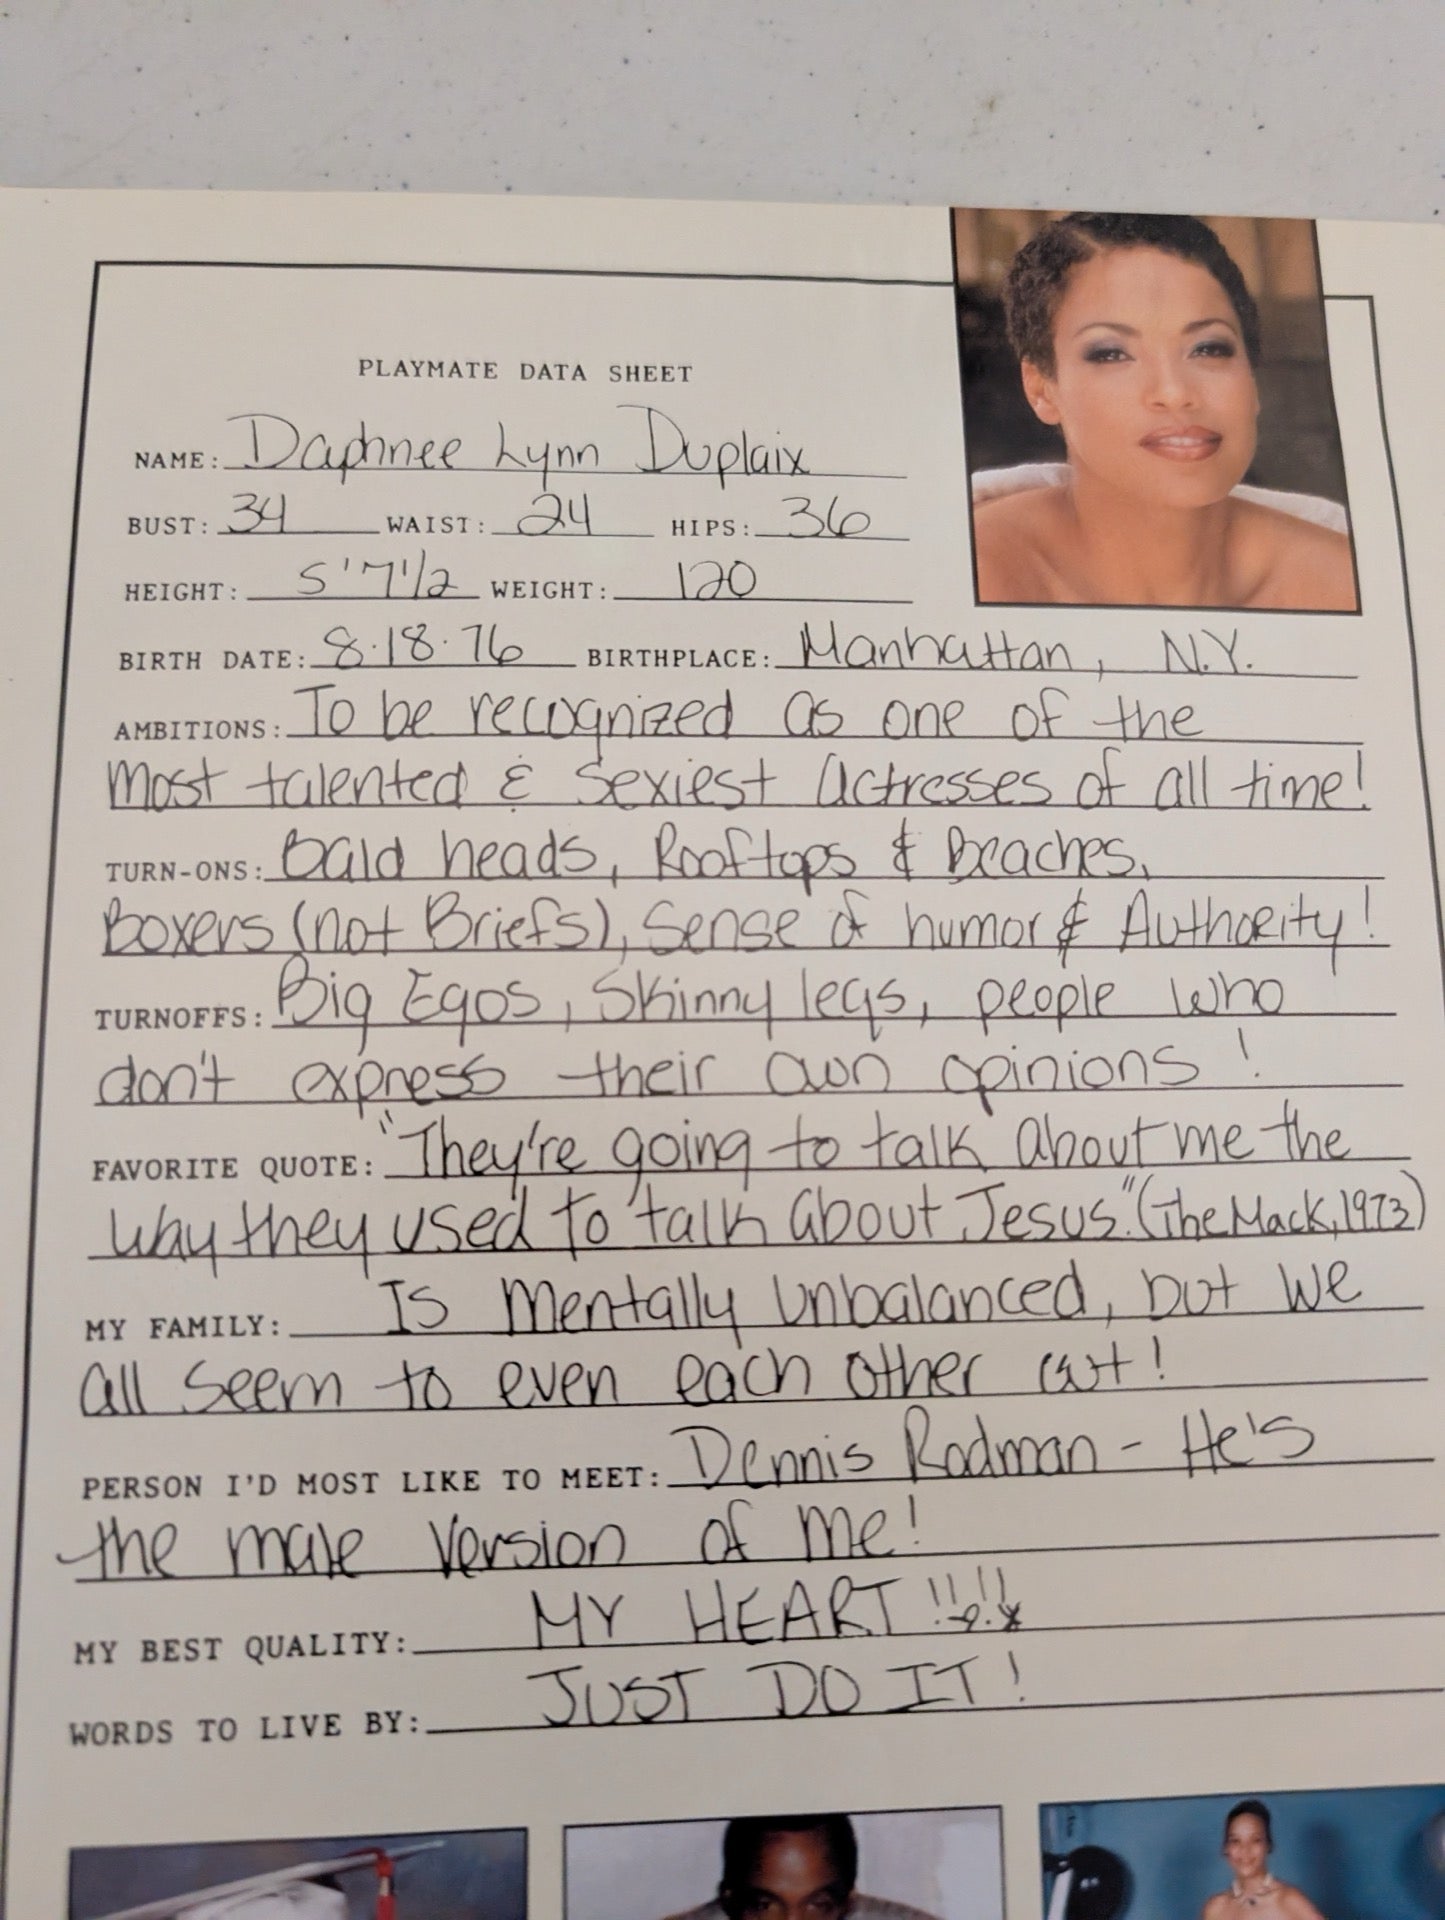 PLAYMATE DATA SHEET
NAME: Daphnee Lynn Duplaix
BUST: 34 WAIST: 24 HIPS: 36
HEIGHT: 5'7 1/2 WEIGHT: 120
BIRTH DATE: 8·18·76 BIRTHPLACE: Manhattan, N.Y.
AMBITIONS: To be recognized as one of the
most talented & sexiest actresses of all time!
TURN-ONS: Bald heads, Rooftops & Beaches,
Boxers (not Briefs), Sense of humor & Authority!
TURNOFFS: Big Egos, Skinny legs, people who
don't express their own opinions!
FAVORITE QUOTE: "They're going to talk about me the
way they used to talk about Jesus." (The Mack, 1973)
MY FAMILY: Is mentally unbalanced, but we
all seem to even each other out!
PERSON I'D MOST LIKE TO MEET: Dennis Rodman - He's
the male version of me!
MY BEST QUALITY: MY HEART!!!!
WORDS TO LIVE BY: JUST DO IT!